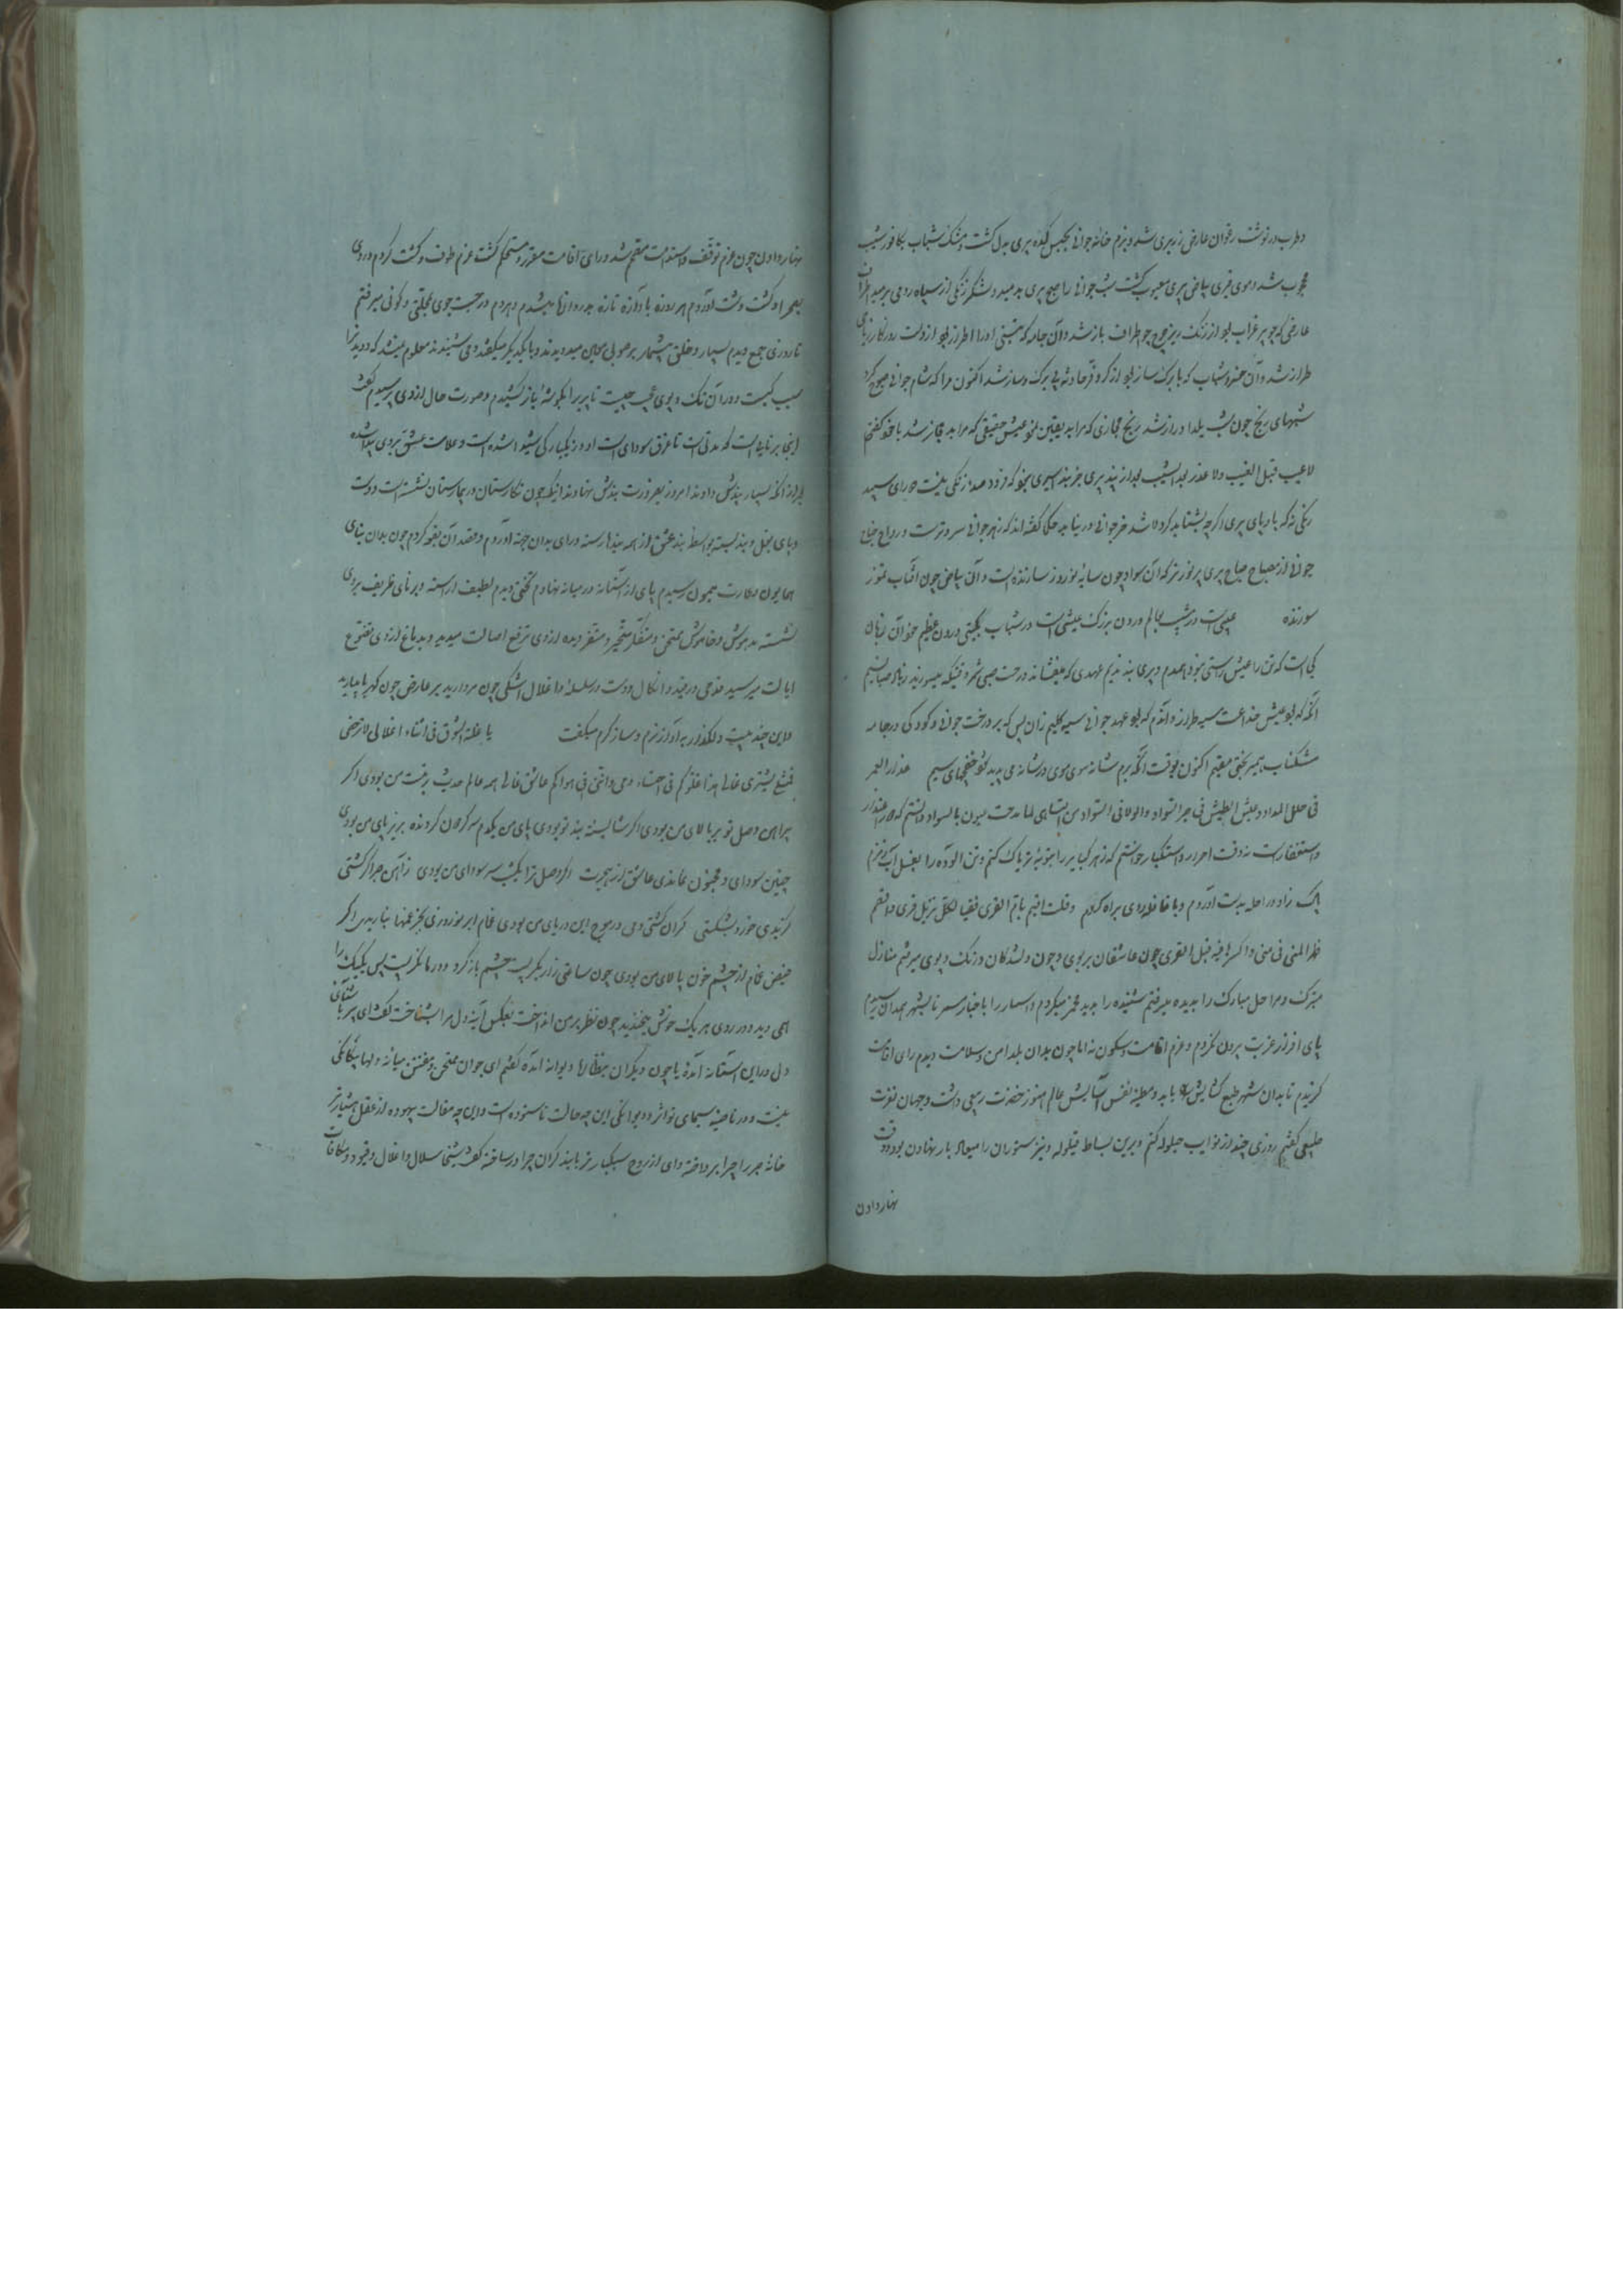 و طرب در نوشت رخوان عارض زریری شد و بزم خانه جوانی بمجلس کده پیری بدل گشت و مشک شباب بکافور شیب
محجوب شد و موی قیری بیاض پیری معیوب گشت شب جوانی را صبح پیری بدمید و لشکر زنگی از سپاه رومی برمید اطراف
عارض که چو پر غراب بود از رنگ ریز چرخ چو اطراف باز شد و آن جامه که
طراز شد و آن خسرو شباب که با برگ و ساز بود از کر و فر حادثه بی برگ و ساز شد اکنون مرا که شام جوانی صبح کرد
شبهای رنج چون شب یلدا دراز شد رنج مجازی که مرا بد یقین نمود عیش حقیقی که مرا بد مجاز شد با خود گفتم
لا عیب قبل الغیب ولا عذر بعد الشیب بعد از پند پیری جز بند اسیری نبود که فرود صد از رنگی نیست و رای سپید
رنگی نه که باد پای پیری اگرچه بشتابد گرد لاشه خر جوانی در نیابد حکما گفته‌اند که زهر جوانی سردترست و رواح جناح
جوانی از مصباح صباح پیری پر نورتر که آن سواد چون سایه نوروز سازنده است و آن بیاض چون آفتاب تموز
سوزنده عیبی است در شیب بعالم درون بزرگ عیشی است در شباب بگیتی درون عظیم خود آن زمان
کی است که تن را عیش راستی نبود همدم و پیری بند ندیم عهدی که میفشاند درخت صبی ثمر وقتیکه میوزید ز باد صبا نسیم
آنگه که بود عیش خداعت سیه طراز و آندم که بود عهد جوانی سیه گلیم زان پس که بر درخت جوانی و کودکی در جامه
مشکناب بتمیز بختی مقیم اکنون بوقت آنکه برم شانه سوی موی در شانه می پدید شود خفجهای سیم عذر العمر
فی حلل المداد و عیش الطیش فی جر السواد
و استغفارست نه وقت اصرار و استکبار خواستم که زهر کبایر را بتوبه تریاک کنم و تن آلوده را بغسل آب زمزم
پاک زاد و راحله بدست آوردم و با قافله روی براه کردم وقلت اقیم بام القری فقیا لکل نزیل قری
فدا المنی فی منی چون عاشقان بربوی و چون دلشدگان در تک و پوی میرفتم منازل
متبرک و مراحل مبارک را بدیده میرفتم شنیده را بدید مخمر میکردم و اسمار را با خبار مسمر تا بشهر همدان رسیدم
پای افزار غربت بیرون نکردم و عزم اقامت و سکون نه اما چون بدان بلد امن و سلامت دیدم رای اقامت
گزیدم تا بدان شهر طبع گشایش یابد و مطیه نفس آسایش عالم هنوز خضرت ربیعی داشت و جهان نضرت
طبیعی گفتم روزی چند از نوایب حیلوله کنم و برین بساط قیلوله و نیز ستوران را میعاد بار نهادن بود و وقت
نهار دادن
نهار دادن چون عزم توقف و استقامت مصمم شد و رای اقامت مقرر و مستحکم گشت عزم طوف و گشت کردم و روی
بصحرا و گشت و دشت آوردم هر روزه باوازه تازه بدروازهٔ میشدم و هر دم در جست جوی بمحلتی و کوئی میرفتم
تا روزی جمع دیدم بسیار و خلقی بیشمار بر صوبی معین میدویدند و با یکدیگر میگفتند و می شنیدند معلوم میشد که دویدن را
سبب کیست و در آن تک و پوی عجب چیست تا پیری را بگوشهٔ باز کشیدم و صورت حال از وی پرسیدم گفت
اینجا برنایی است که مدتی است تا غرق سودای است و امروز یکبارگی شیدا شده است و علامت عشق بر وی پیدا شده
بعد از آنکه بسیار پندش دادند امروز بضرورت بندش نهادند اینک چون نگارستان در بیمارستان نشسته است و دست
و پای بغل و بند بسته بواسطهٔ بند عشق از همه بندها رسته و رای بدان جهت آوردم و قصد آن بقعه کردم چون بدان بنای
همایون و عمارت میمون رسیدم پای از آستانه در میانه نهادم تختی دیدم لطیف آراسته و برنای ظریف بروی
نشسته مدهوش و خاموش ممتحن و متفکر متحیر و متغیر دیده از وی ترفع اصالت میدید و بدماغ از وی تضوع
ایالت میرسید مدتی در بند و انکال و دست در سلسله و اغلال اشکی چون مروارید بر عارض چون کهربا میبارید
و این چند بیت دلگداز به آواز نرم و ساز گرم میگفت یا غلة الشوق فی اثناء اغلالی لا ترخصی
فمثلی یشتری غالی هذا غلوکم فی احشاء وحی وانتمی انی هواکم عاشق غالی همه عالم حدیث رفعت من بودی اگر
پیراهن وصل تو بر بالای من بودی اگر شایستهٔ بند تو بودی پای من یکدم سر گردن کردنده بزیر پای من بودی
چنین سودای و مجنون نماندی عاشق از هجرت اگر وصل ترا یکشب سر سودای من بودی ز آهن جدا گر کشتی
گزیدی خود بشکستی گران کشتی و می در موج این دریای من بودی غمام ابر نوروزی بجز غمها نباریدی اگر
فیض غمام از چشم خون پالای من بودی چون ساعتی زار بگریست چشم باز کرد و در ما نگریست پس یکیک را
همی دید و در روی هر یک خوش میخندید چون نظر بر من انداخت بعکس آینهٔ دل مرا بشناخت گفت ای پیر با شتاب
دل در این آستانه آمدهٔ یا چون دیگران بنظارهٔ دیوانه آمدهٔ گفتم ای جوان ممتحن و مفتتن میانهٔ دلها بیگانگی
نیست و در ناصیهٔ سیمای تو اثر دیوانگی این چه حالت ناستوده است و این چه مقالت بیهوده از عقل هشیارتر
خانهٔ خرد را چرا پرداختهٔ و ای از روح سبکبارتر با بند گران چرا در ساختهٔ گفت سلاسل و اغلال و قیود و مکافات